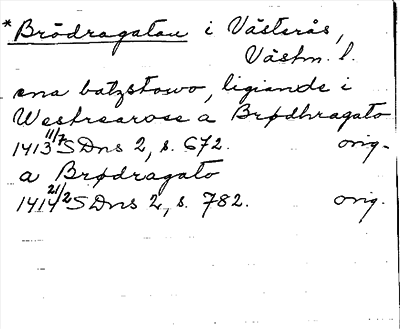 *Brödragatan i Västerås,
Västm. l.
ena batzstowo, ligiande i
Westrearose a Brødhragato
1413 11/7 SDns 2, s. 672. orig.
a Brødragato
1414 21/2 SDns 2, s. 782. orig.